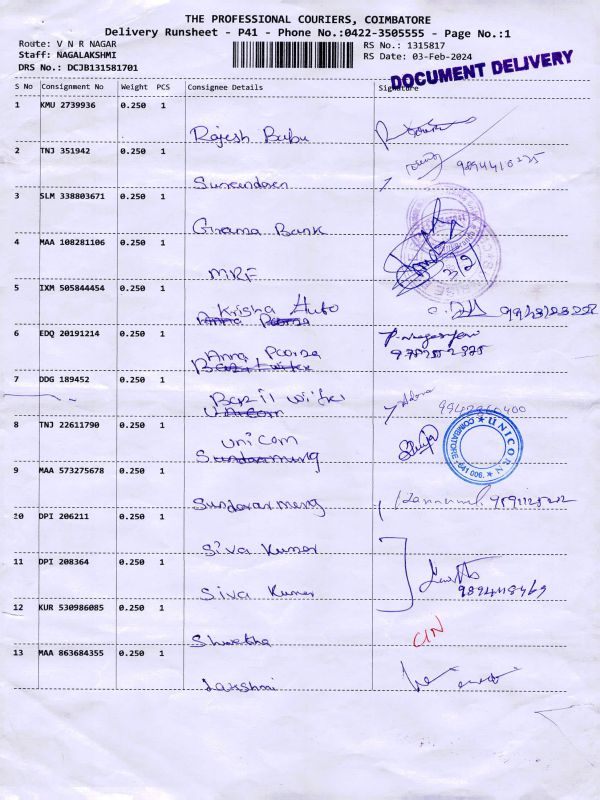 THE PROFESSIONAL COURIERS, COIMBATORE
Delivery Runsheet - P41 - Phone No.:0422-3505555 - Page No.:1
Route: V N R NAGAR RS No.: 1315817
Staff: NAGALAKSHMI RS Date: 03-Feb-2024
DRS No.: DCJB131581701
DOCUMENT DELIVERY
S No Consignment No Weight PCS Consignee Details Signature
1 KMU 2739936 0.250 1
Rajesh Babu
2 TNJ 351942 0.250 1
9894410225
3 SLM 338803671 0.250 1
Grama Bank
4 MAA 108281106 0.250 1
MRF
5 IXM 505844454 0.250 1
Krisha Auto
Anna Poorna
6 EDQ 20191214 0.250 1
Anna Poorna
7 DDG 189452 0.250 1
8 TNJ 22611790 0.250 1
unicom
UNICORN
COIMBATORE - 641 006.
9 MAA 573275678 0.250 1
10 DPI 206211 0.250 1
Siva Kumar
11 DPI 208364 0.250 1
Siva Kumar
12 KUR 530986085 0.250 1
Shwetha
13 MAA 863684355 0.250 1
Lakshmi